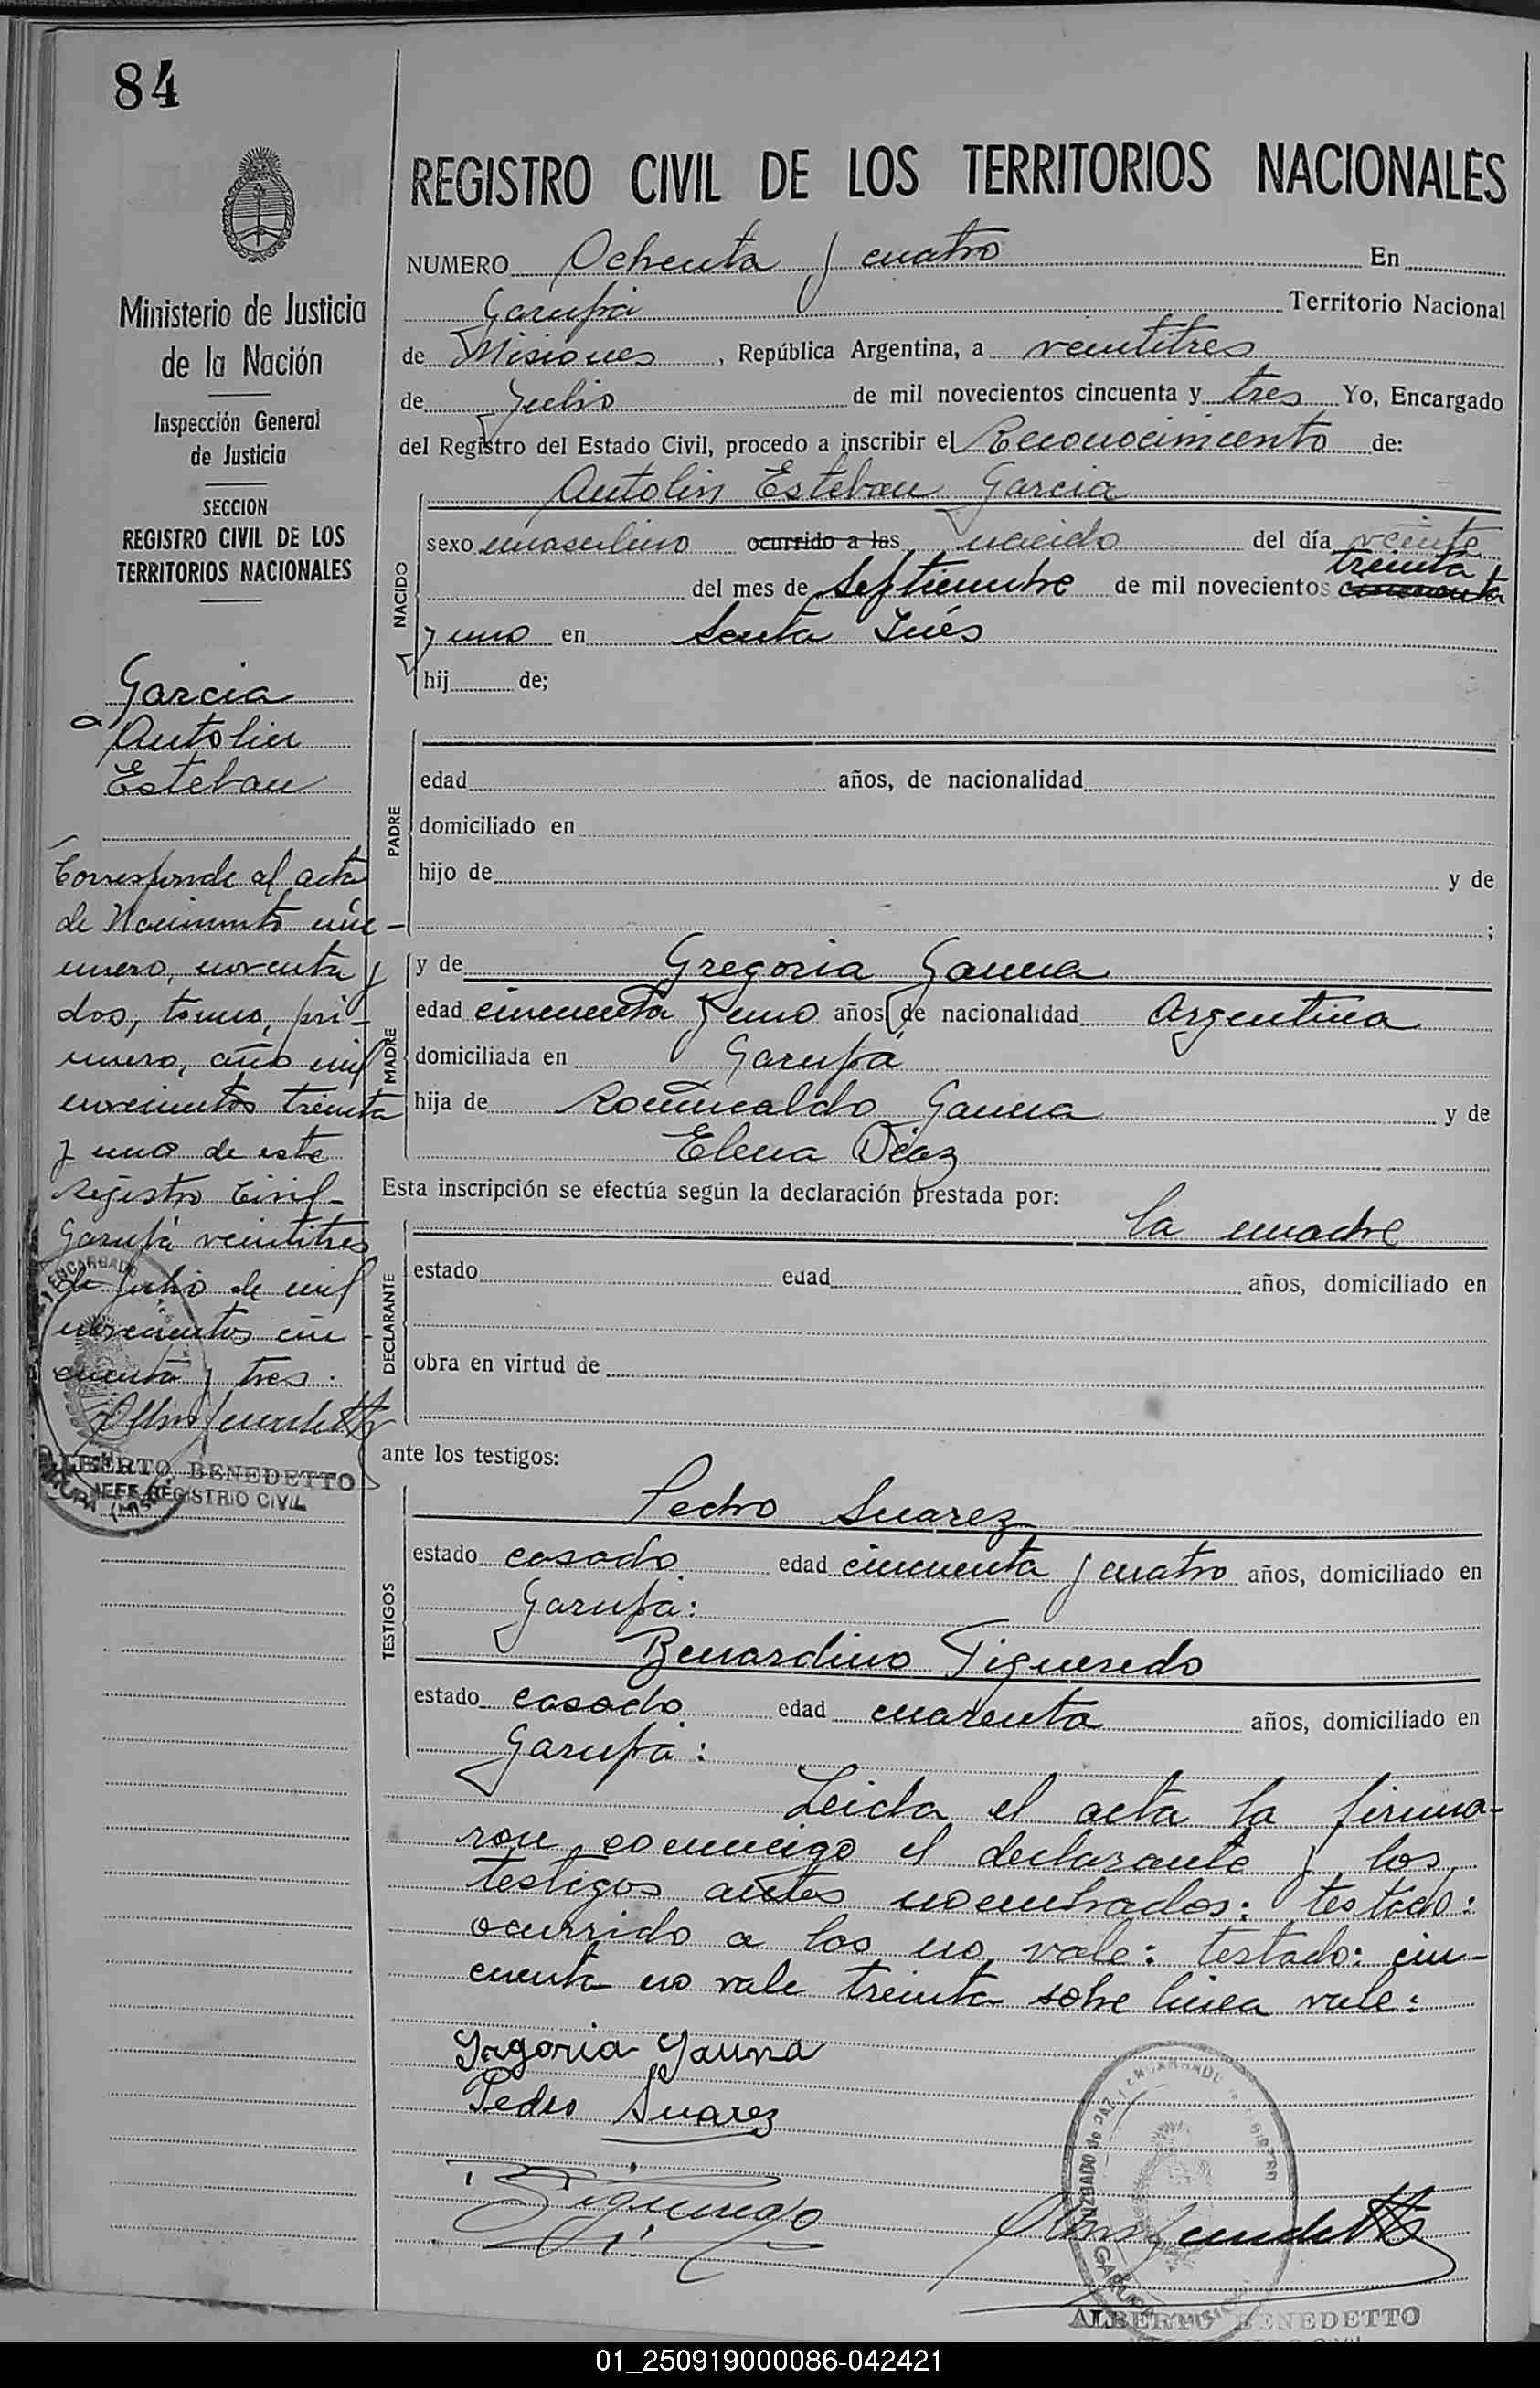 84
Ministerio de Justicia
de la Nación
Inspección General
de Justicia
SECCION
REGISTRO CIVIL DE LOS
TERRITORIOS NACIONALES
Garcia
Antolin
Esteban
Corresponde al acta
de Nacimiento nú-
mero, noventa y
dos, tomo, pri-
mero, año mil
novecientos treinta
y uno de este
Registro Civil-
Garupá veintitres
de Julio de mil
novecientos cin-
cuenta y tres.
ALBERTO BENEDETTO
JEFE REGISTRIO CIVIL
REGISTRO CIVIL DE LOS TERRITORIOS NACIONALES
NUMERO Ochenta y cuatro En
Garupá Territorio Nacional
de Misiones, República Argentina, a veintitres
de Julio de mil novecientos cincuenta y tres Yo, Encargado
del Registro del Estado Civil, procedo a inscribir el Reconocimiento de:
NACIDO
Antolin Esteban Garcia
sexo masculino ocurrido a las nacido del día veinte
treinta
del mes de Septiembre de mil novecientos cincuenta
y uno en Santa Inés
hij de;
PADRE
edad años, de nacionalidad
domiciliado en
hijo de y de
;
MADRE
y de Gregoria Gauna
edad cincuenta y uno años de nacionalidad Argentina
domiciliada en Garupá
hija de Romualdo Gauna y de
Elena Diaz
Esta inscripción se efectúa según la declaración prestada por:
DECLARANTE
la madre
estado edad años, domiciliado en
obra en virtud de
ante los testigos:
TESTIGOS
Pedro Suarez
estado casado edad cincuenta y cuatro años, domiciliado en
Garupá:
Bernardino Figueredo
estado casado edad cuarenta años, domiciliado en
Garupá:
Leida el acta la firma-
ron conmigo el declarante y los
testigos antes nombrados: testado:
ocurrido a las no vale: testado: cin-
cuenta no vale treinta sobre linea vale:
Gregoria Gauna
Pedro Suarez
ALBERTO BENEDETTO
01_250919000086-042421